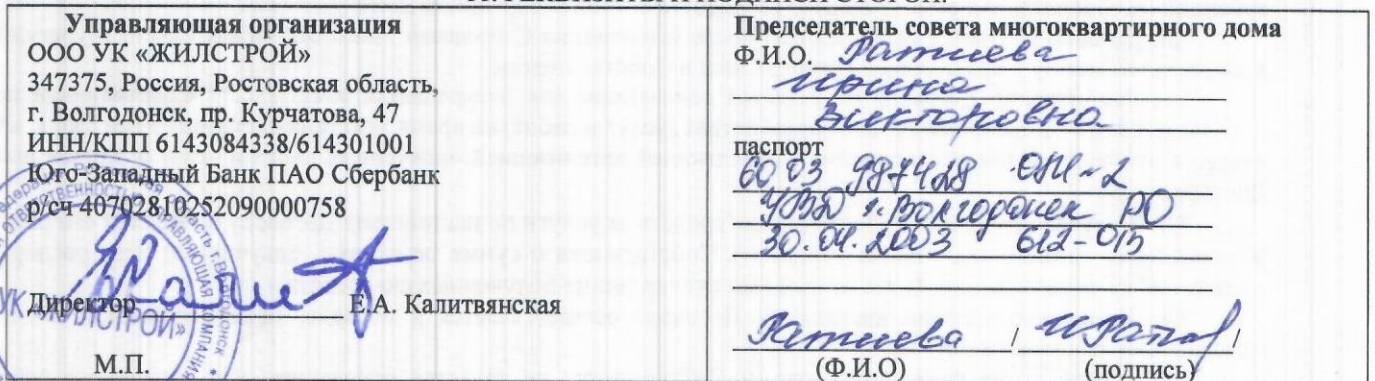 Управляющая организация
ООО УК «ЖИЛСТРОЙ»
347375, Россия, Ростовская область,
г. Волгодонск, пр. Курчатова, 47
ИНН/КПП 6143084338/614301001
Юго-Западный Банк ПАО Сбербанк
р/сч 40702810252090000758
Директор Е.А. Калитвянская
УК «ЖИЛСТРОЙ»
М.П.
Председатель совета многоквартирного дома
Ф.И.О. Ратиева
Ирина
Викторовна
паспорт
60 03 987428 ОМ-2
УВД г. Волгодонск РО
30.04.2003 612-015
Ратиева / /
(Ф.И.О) (подпись)